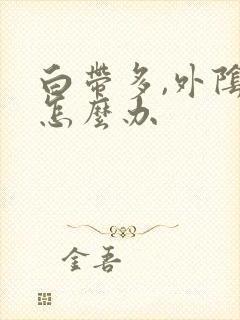 白帶多,外陰
怎麼办
金吾